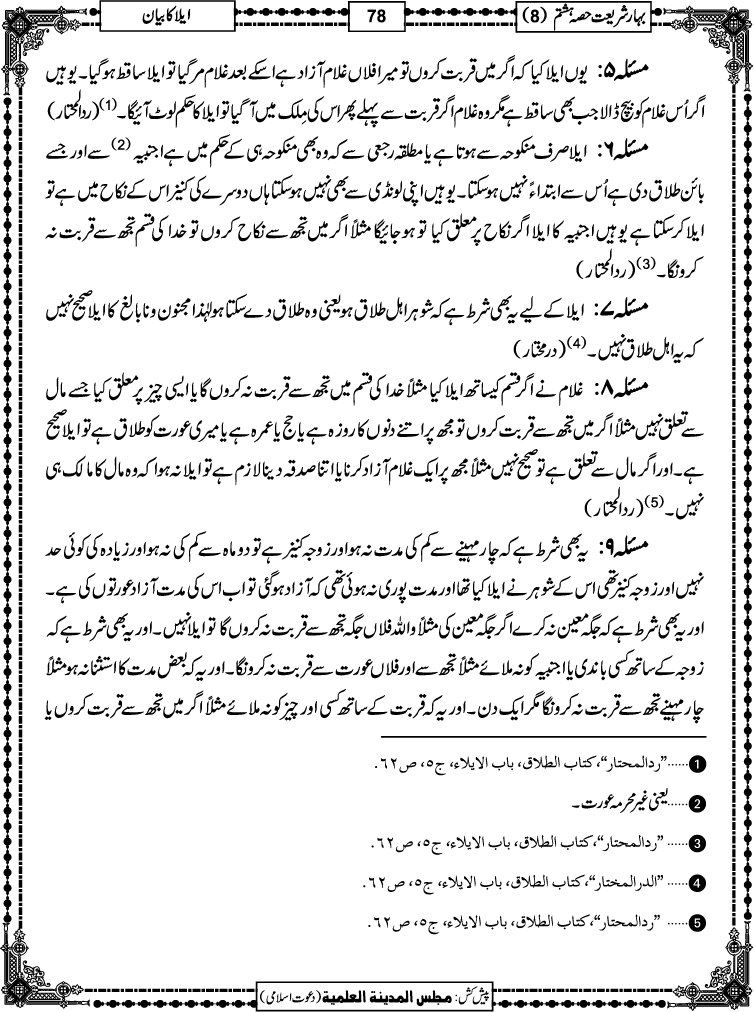 بہارِ شریعت حصہ ہشتم (8)
78
ایلا کا بیان
مسئلہ ۵: یوں ایلا کیا کہ اگر میں قربت کروں تو میرا فلاں غلام آزاد ہے اسکے بعد غلام مرگیا تو ایلا ساقط ہوگیا۔ یوہیں
اگر اُس غلام کو بیچ ڈالا جب بھی ساقط ہے مگر وہ غلام اگر قربت سے پہلے پھر اس کی مِلک میں آگیا تو ایلا کا حکم لوٹ آئیگا۔(1) (ردالمحتار)
مسئلہ ۶: ایلا صرف منکوحہ سے ہوتا ہے یا مطلقہ رجعی سے کہ وہ بھی منکوحہ ہی کے حکم میں ہے اجنبیہ (2) سے اور جسے
بائن طلاق دی ہے اُس سے ابتداءً نہیں ہوسکتا۔ یوہیں اپنی لونڈی سے بھی نہیں ہوسکتا ہاں دوسرے کی کنیز اس کے نکاح میں ہے تو
ایلا کرسکتا ہے یوہیں اجنبیہ کا ایلا اگر نکاح پر معلق کیا تو ہوجائیگا مثلاً اگر میں تجھ سے نکاح کروں تو خدا کی قسم تجھ سے قربت نہ
کرونگا۔(3) (ردالمحتار)
مسئلہ ۷: ایلا کے لیے یہ بھی شرط ہے کہ شوہر اہل طلاق ہو یعنی وہ طلاق دے سکتا ہو لہٰذا مجنون و نابالغ کا ایلا صحیح نہیں
کہ یہ اہل طلاق نہیں۔(4) (درمختار)
مسئلہ ۸: غلام نے اگر قسم کیساتھ ایلا کیا مثلاً خدا کی قسم میں تجھ سے قربت نہ کروں گا یا ایسی چیز پر معلق کیا جسے مال
سے تعلق نہیں مثلاً اگر میں تجھ سے قربت کروں تو مجھ پر اتنے دنوں کا روزہ ہے یا حج یا عمرہ ہے یا میری عورت کو طلاق ہے تو ایلا صحیح
ہے۔ اور اگر مال سے تعلق ہے تو صحیح نہیں مثلاً مجھ پر ایک غلام آزاد کرنا یا اتنا صدقہ دینا لازم ہے تو ایلا نہ ہوا کہ وہ مال کا مالک ہی
نہیں۔(5) (ردالمحتار)
مسئلہ ۹: یہ بھی شرط ہے کہ چار مہینے سے کم کی مدت نہ ہو اور زوجہ کنیز ہے تو دو ماہ سے کم کی نہ ہو اور زیادہ کی کوئی حد
نہیں اور زوجہ کنیز تھی اس کے شوہر نے ایلا کیا تھا اور مدت پوری نہ ہوئی تھی کہ آزاد ہوگئی تو اب اس کی مدت آزاد عورتوں کی ہے۔
اور یہ بھی شرط ہے کہ جگہ معین نہ کرے اگر جگہ معین کی مثلاً واللہ فلاں جگہ تجھ سے قربت نہ کروں گا تو ایلا نہیں۔ اور یہ بھی شرط ہے کہ
زوجہ کے ساتھ کسی باندی یا اجنبیہ کو نہ ملائے مثلاً تجھ سے اور فلاں عورت سے قربت نہ کرونگا۔ اور یہ کہ بعض مدت کا استثنا نہ ہو مثلاً
چار مہینے تجھ سے قربت نہ کرونگا مگر ایک دن۔ اور یہ کہ قربت کے ساتھ کسی اور چیز کو نہ ملائے مثلاً اگر میں تجھ سے قربت کروں یا
1 ......”ردالمحتار“، کتاب الطلاق، باب الایلاء، ج۵، ص۶۲.
2 ......یعنی غیر محرمہ عورت۔
3 ......”ردالمحتار“، کتاب الطلاق، باب الایلاء، ج۵، ص۶۲.
4 ......”الدرالمختار“، کتاب الطلاق، باب الایلاء، ج۵، ص۶۲.
5 ......”ردالمحتار“، کتاب الطلاق، باب الایلاء، ج۵، ص۶۲.
پیش کش: مجلس المدینة العلمیة (دعوت اسلامی)